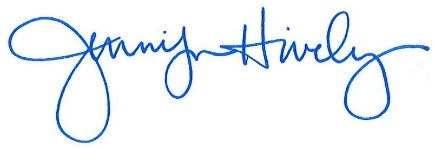 Jennifer Hively